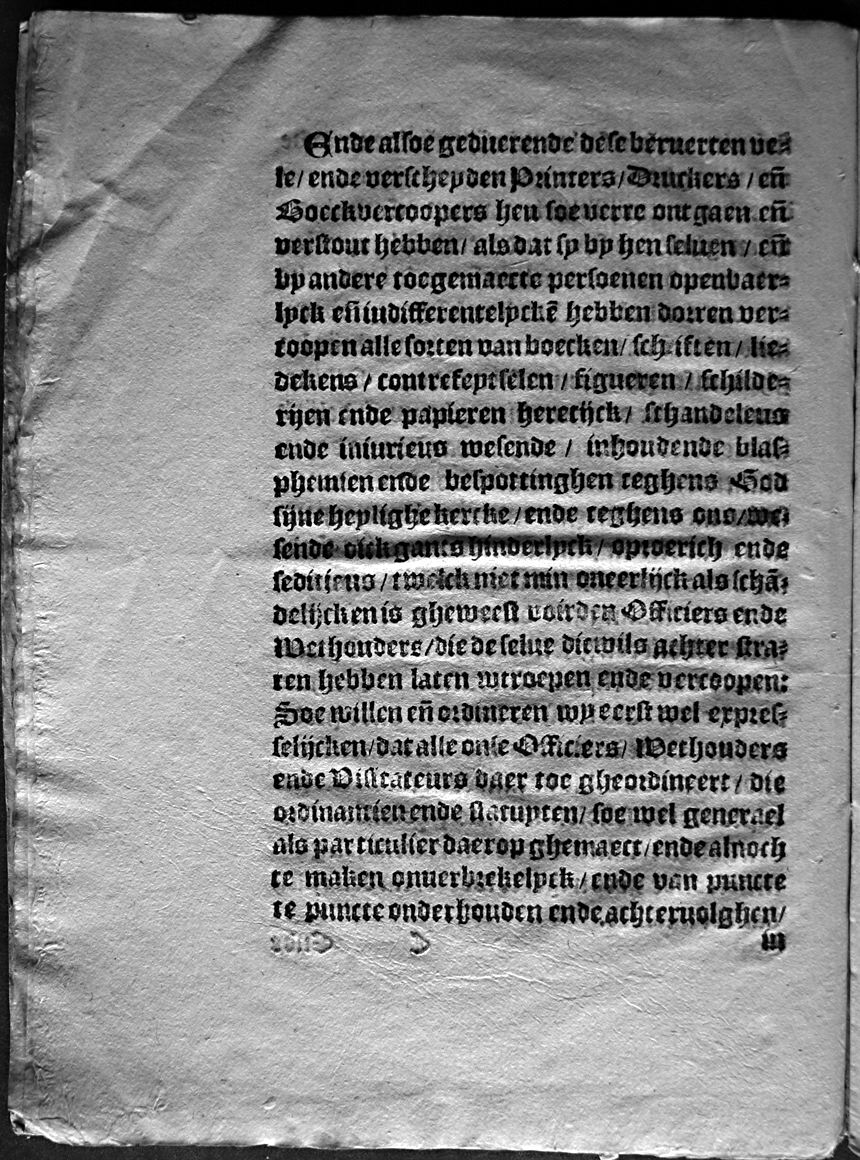 Ende alsoe geduerende dese beruerten ve⸗
le/ ende verscheyden Printers/ Druckers / en̄
Boeckvercoopers hen soe verre ontgaen en̄
verstout hebben/ als dat sy by hen seluen / en̄
by andere toegemaecte persoenen openbaer⸗
lyck en̄ indifferentelyckē hebben dorren ver⸗
coopen alle sorten van boecken/ schriften/ lie⸗
dekens / contrefeytselen / figueren / schilde⸗
rijen ende papieren heretijck/ schandeleus
ende iniurieus wesende / inhoudende blas⸗
phemien ende bespottinghen teghens God
sijne heylighe kercke/ ende teghens ons/ we⸗
sende oick gants hinderlyck/ oproerich ende
seditieus / twelck niet min oneerlijck als schā⸗
delijcken is gheweest voirden Officiers ende
Wethouders/ die de selue dicwils achter stra⸗
ten hebben laten wtroepen ende vercoopen:
Soe willen en̄ ordineren wy eerst wel expres⸗
selijcken/ dat alle onse Officiers/ Wethouders
ende Visitateurs daer toe gheordineert/ die
ordinantien ende statuyten/ soe wel generael
als particulier daerop ghemaect/ ende alnoch
te maken onuerbrekelyck/ ende van puncte
te puncte onderhouden ende achteruolghen/
in